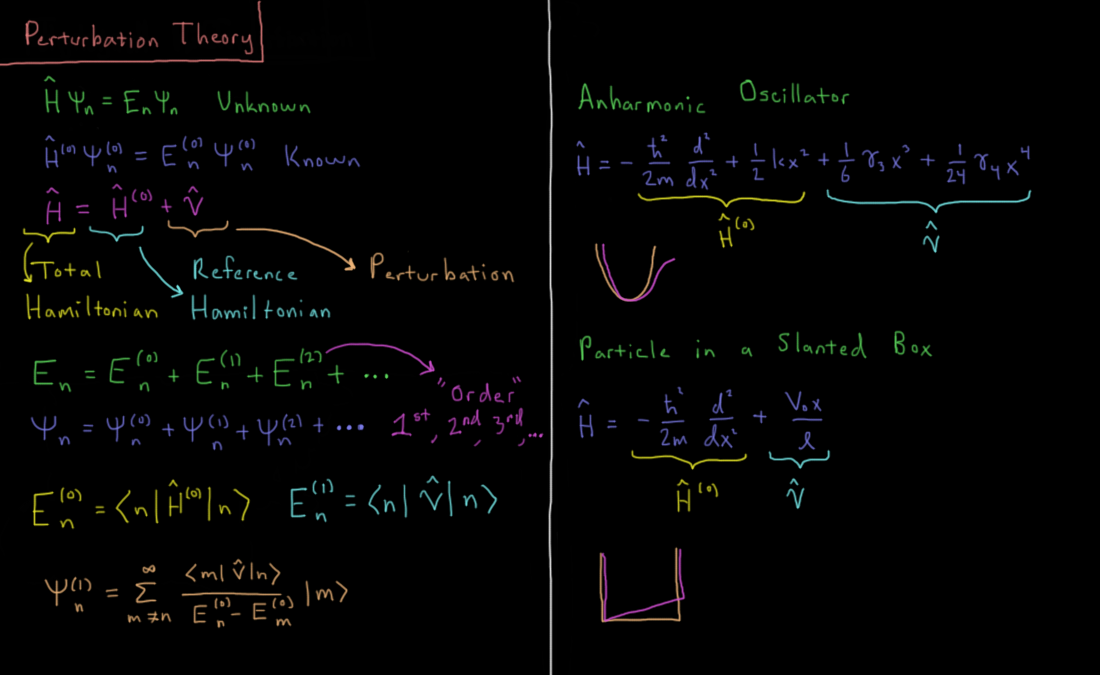 Perturbation Theory
Ĥ Ψₙ = Eₙ Ψₙ Unknown
Ĥ⁽⁰⁾ Ψₙ⁽⁰⁾ = Eₙ⁽⁰⁾ Ψₙ⁽⁰⁾ Known
Ĥ = Ĥ⁽⁰⁾ + V̂
Total Hamiltonian
Reference Hamiltonian
Perturbation
Eₙ = Eₙ⁽⁰⁾ + Eₙ⁽¹⁾ + Eₙ⁽²⁾ + ...
"Order"
Ψₙ = Ψₙ⁽⁰⁾ + Ψₙ⁽¹⁾ + Ψₙ⁽²⁾ + ... 1st, 2nd, 3rd, ...
Eₙ⁽⁰⁾ = ⟨n|Ĥ⁽⁰⁾|n⟩ Eₙ⁽¹⁾ = ⟨n|V̂|n⟩
Ψₙ⁽¹⁾ = ∑_{m≠n}^{∞} (⟨m|V̂|n⟩)/(Eₙ⁽⁰⁾ - Eₘ⁽⁰⁾) |m⟩
Anharmonic Oscillator
Ĥ = - ħ²/2m d²/dx² + 1/2 kx² + 1/6 γ₃x³ + 1/24 γ₄x⁴
Ĥ⁽⁰⁾ V̂
Particle in a Slanted Box
Ĥ = - ħ²/2m d²/dx² + V₀x/ℓ
Ĥ⁽⁰⁾ V̂